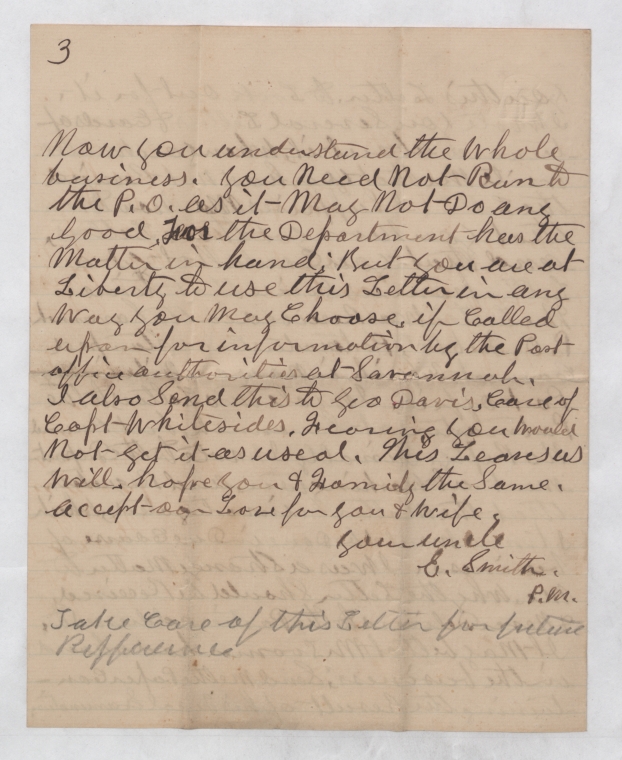 3
Now you understand the Whole
business. you Need Not Run to
the P.O. as it May Not Do any
Good, For the Department has the
Matter in hand; But you are at
Liberty to use this Letter in any
Way you May Choose, if Called
upon for information by the Post
office authorities at Savannah.
I also Send this to Geo Davis, Care of
Capt Whitesides, Fearing you Would
Not get it as useal. This Leaves us
Will. hope you & Family the Same.
accept our Love for you & Wife.
your uncle
E. Smith.
P.M.
Take Care of this Letter for future
Refference